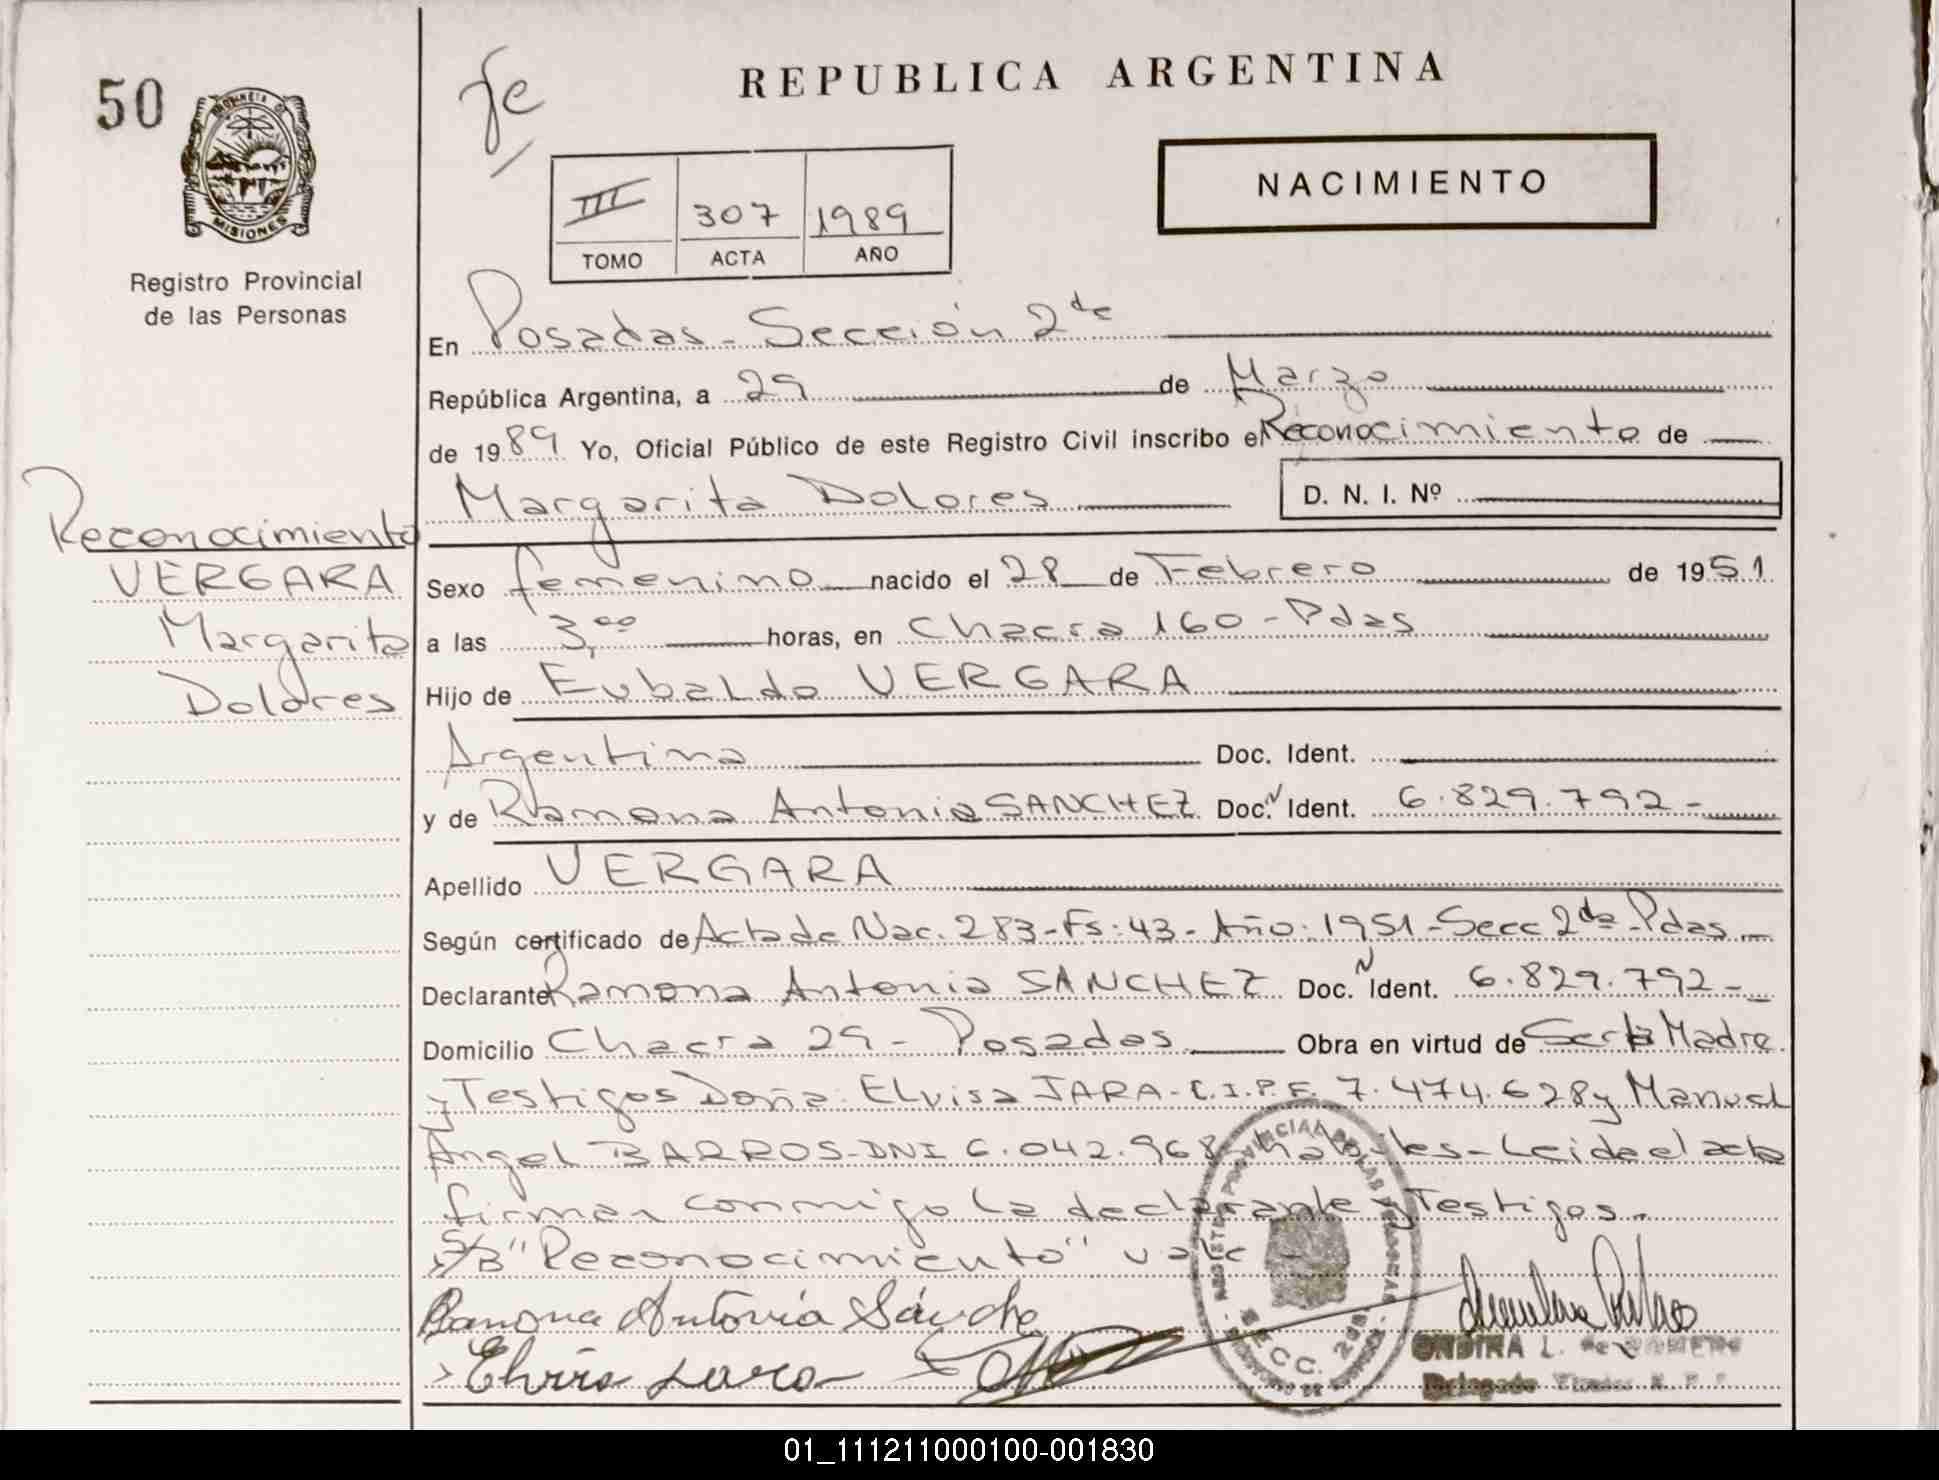 50
fe
REPUBLICA ARGENTINA
PROVINCIA DE
MISIONES
Registro Provincial
de las Personas
NACIMIENTO
III 307 1989
TOMO ACTA AÑO
En Posadas - Sección 2da
República Argentina, a 29 de Marzo
de 1989 Yo, Oficial Público de este Registro Civil inscribo el Reconocimiento de
Margarita Dolores D. N. I. Nº
Reconocimiento
VERGARA
Margarita
Dolores
Sexo femenino nacido el 28 de Febrero de 1951
a las 3,00 horas, en Chacra 160 - Pdas
Hijo de Eubaldo VERGARA
Argentina Doc. Ident.
y de Ramona Antonia SANCHEZ Doc. N Ident. 6.829.792 -
Apellido VERGARA
Según certificado de Acta de Nac. 283 - Fs: 43 - Año: 1951 - Secc 2da - Pdas -
Declarante Ramona Antonia SANCHEZ Doc. N Ident. 6.829.792 -
Domicilio Chacra 29 - Posadas Obra en virtud de Ser la Madre
y Testigos Doña: Elvisa JARA - C.I.P.F. 7.474.628 y Manuel
Angel BARROS - DNI 6.042.968 hábiles - Leida el acta
firman conmigo la declarante y Testigos.
S/B "Reconocimiento" vale
Ramona Antonia Sánche
Elviza Jara
SECC. 2da
ONDINA L. de ROMERO
Delegado Titular R. P. P.
01_111211000100-001830